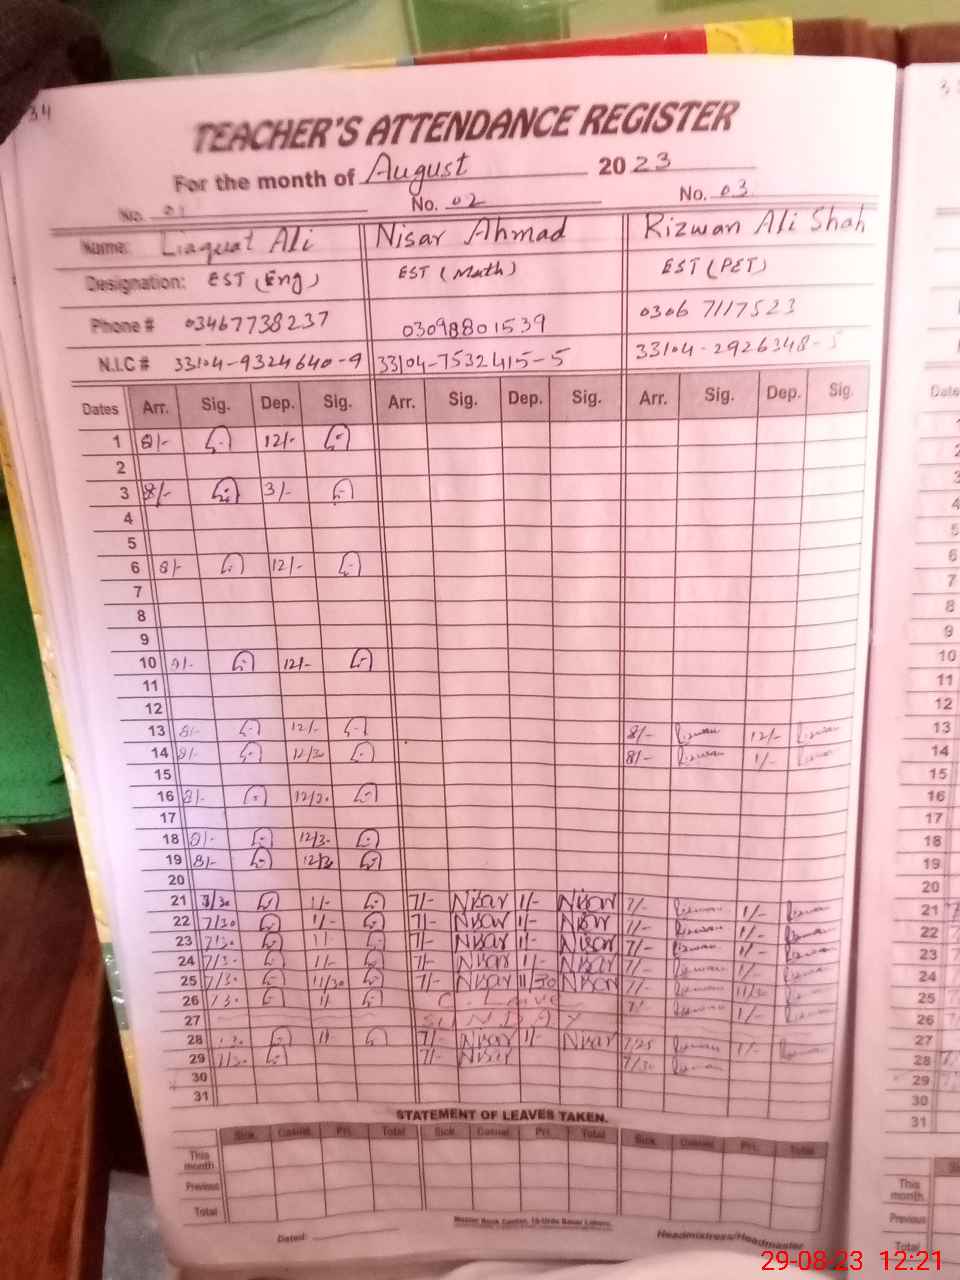 34
TEACHER'S ATTENDANCE REGISTER
For the month of August 2023
No. 01 No. 02 No. 03
Name: Liaquat Ali Nisar Ahmad Rizwan Ali Shah
Designation: EST (Eng) EST (Math) EST (PET)
Phone # 03467738237 03098801539 0306 7117523
N.I.C # 33104-9324640-9 33104-7532415-5 33104-2926348-
Dates Arr. Sig. Dep. Sig. Arr. Sig. Dep. Sig. Arr. Sig. Dep. Sig.
1 8/- 12/-
2
3 8/- 3/-
4
5
6 8/- 12/-
7
8
9
10 8/- 12/-
11
12
13 8/- 12/- 8/- Rizwan 12/- Rizwan
14 8/- 12/30 8/- Rizwan 1/- Rizwan
15
16 8/- 12/30
17
18 8/- 12/30
19 8/- 12/30
20
21 7/30 1/- 7/- Nisar 1/- Nisar 7/- Rizwan 1/- Rizwan
22 7/30 1/- 7/- Nisar 1/- Nisar 7/- Rizwan 1/- Rizwan
23 7/30 1/- 7/- Nisar 1/- Nisar 7/- Rizwan 1/- Rizwan
24 7/30 1/- 7/- Nisar 1/- Nisar 7/- Rizwan 1/- Rizwan
25 7/30 11/30 7/- Nisar 11/30 Nisar 7/- Rizwan 11/30 Rizwan
26 7/30 1/- C. Leave 7/- Rizwan 1/- Rizwan
27 SUNDAY
28 1/- 7/- Nisar 1/- Nisar 7/25 Rizwan 1/- Rizwan
29 7/- Nisar 7/30 Rizwan
30
31
STATEMENT OF LEAVES TAKEN.
Sick. Casual. Pri. Total Sick. Casual. Pri. Total Sick. Casual. Pri. Total
This month
Previous
Total
Dated: Headmistress/Headmaster
Dates
2
3
4
5
6
7
8
9
10
11
12
13
14
15
16
17
18
19
20
21
22
23
24
25
26
27
28
29
30
31
This month
Previous
Total
29-08-23 12:21